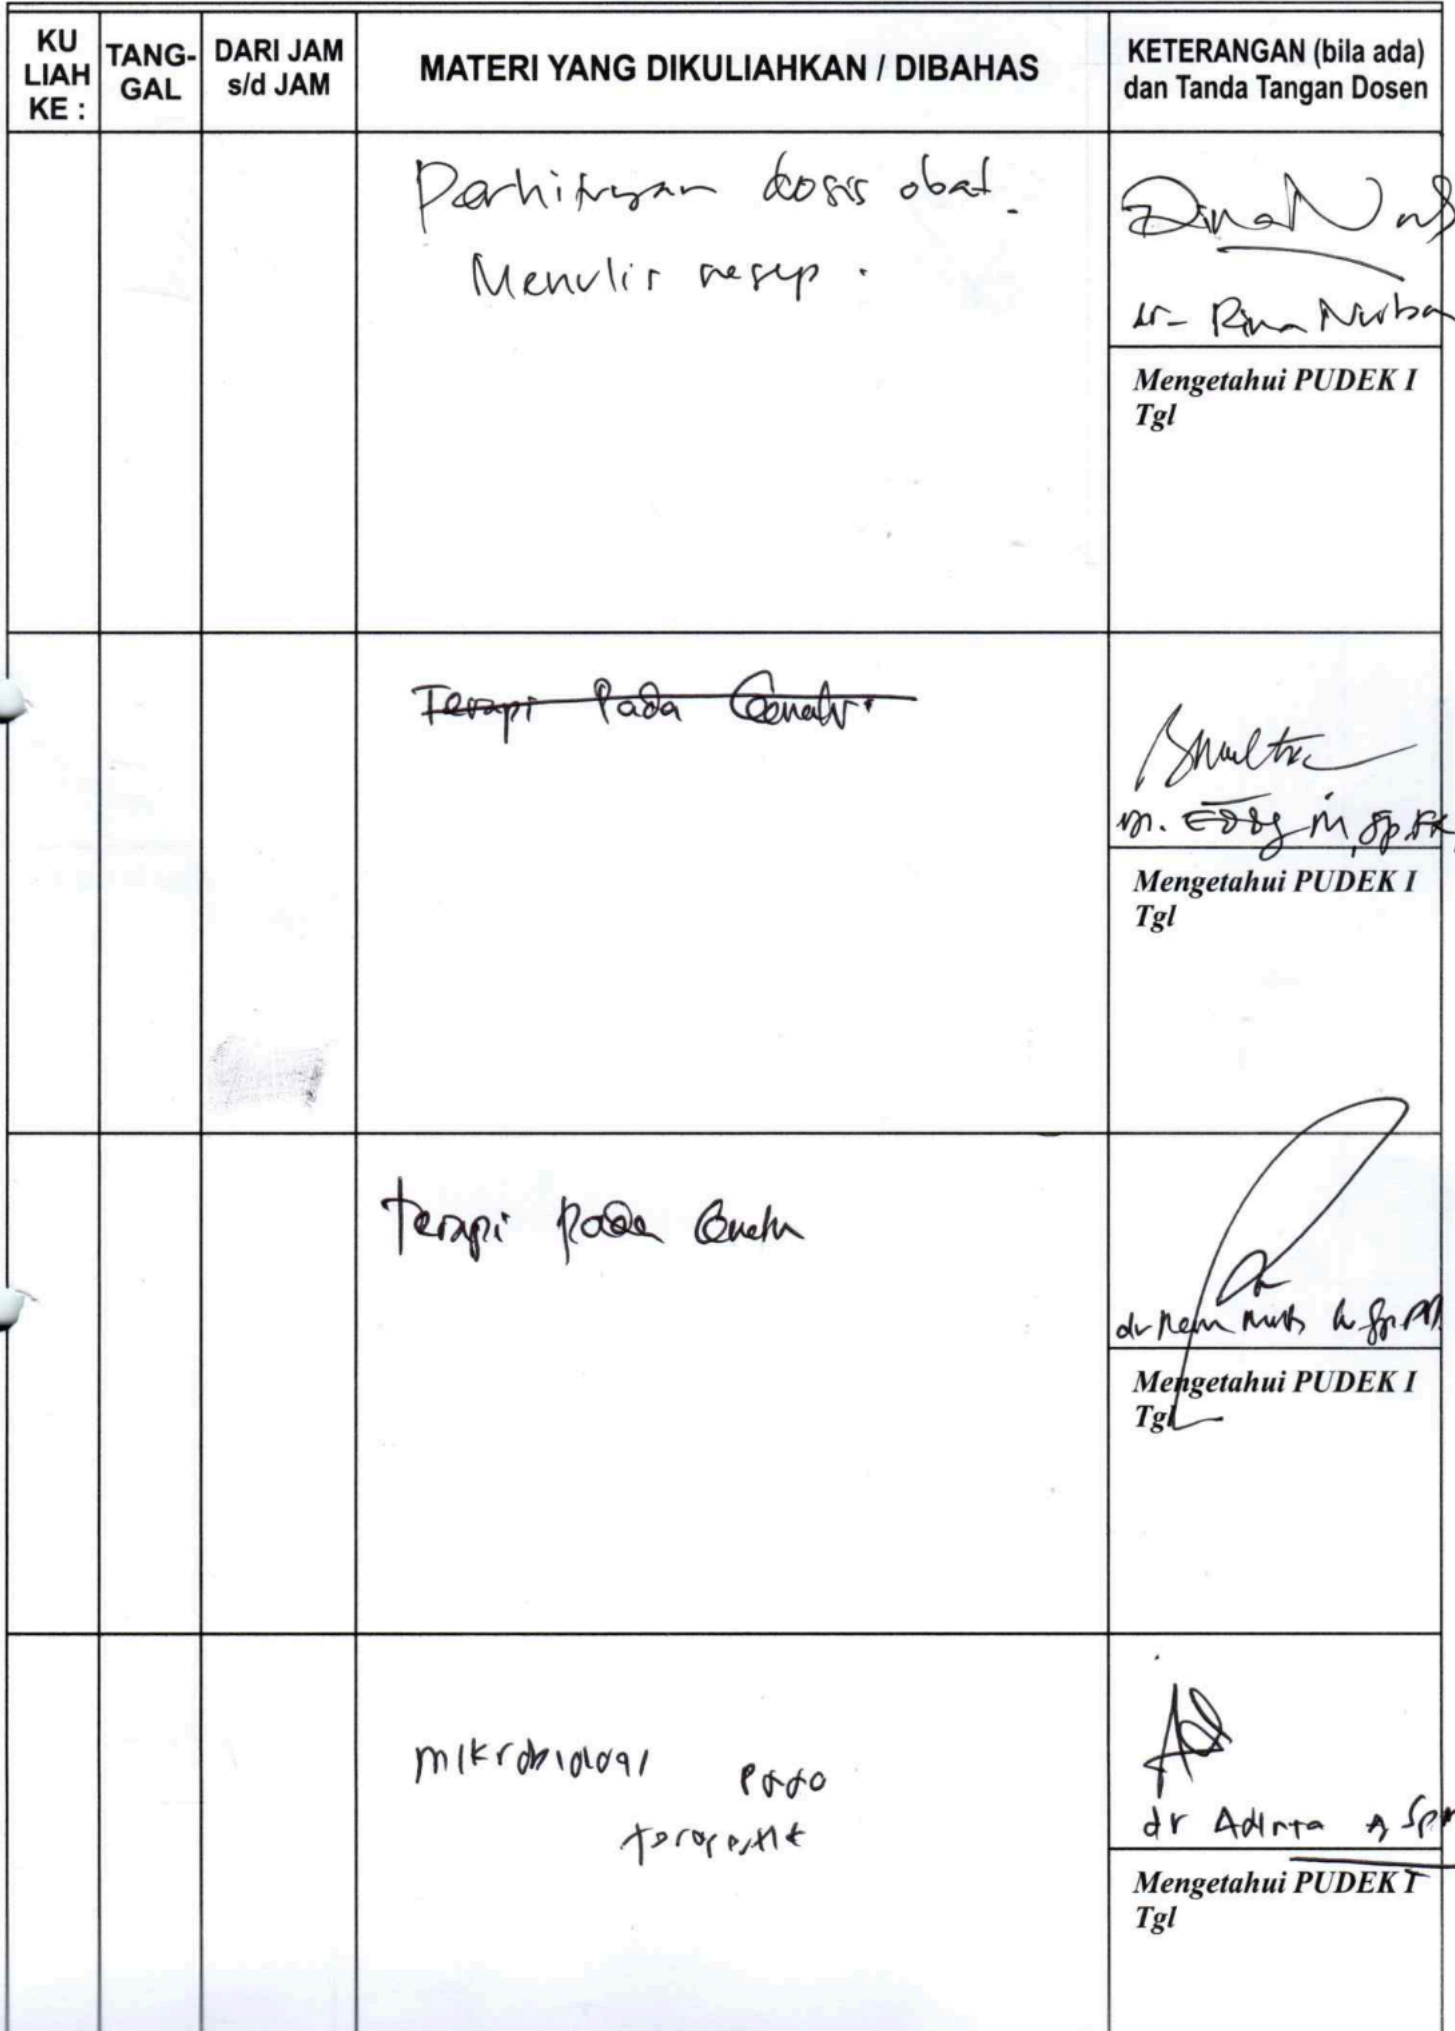 KU LIAH KE :
TANG-GAL
DARI JAM s/d JAM
MATERI YANG DIKULIAHKAN / DIBAHAS
KETERANGAN (bila ada) dan Tanda Tangan Dosen
Perhitungan dosis obat.
Menulis resep.
dr. Rina
Mengetahui PUDEK I
Tgl
Terapi Pada
Sp.FK
Mengetahui PUDEK I
Tgl
Terapi pada
dr
Mengetahui PUDEK I
Tgl
mikrobiologi pada
dr
Mengetahui PUDEK I
Tgl